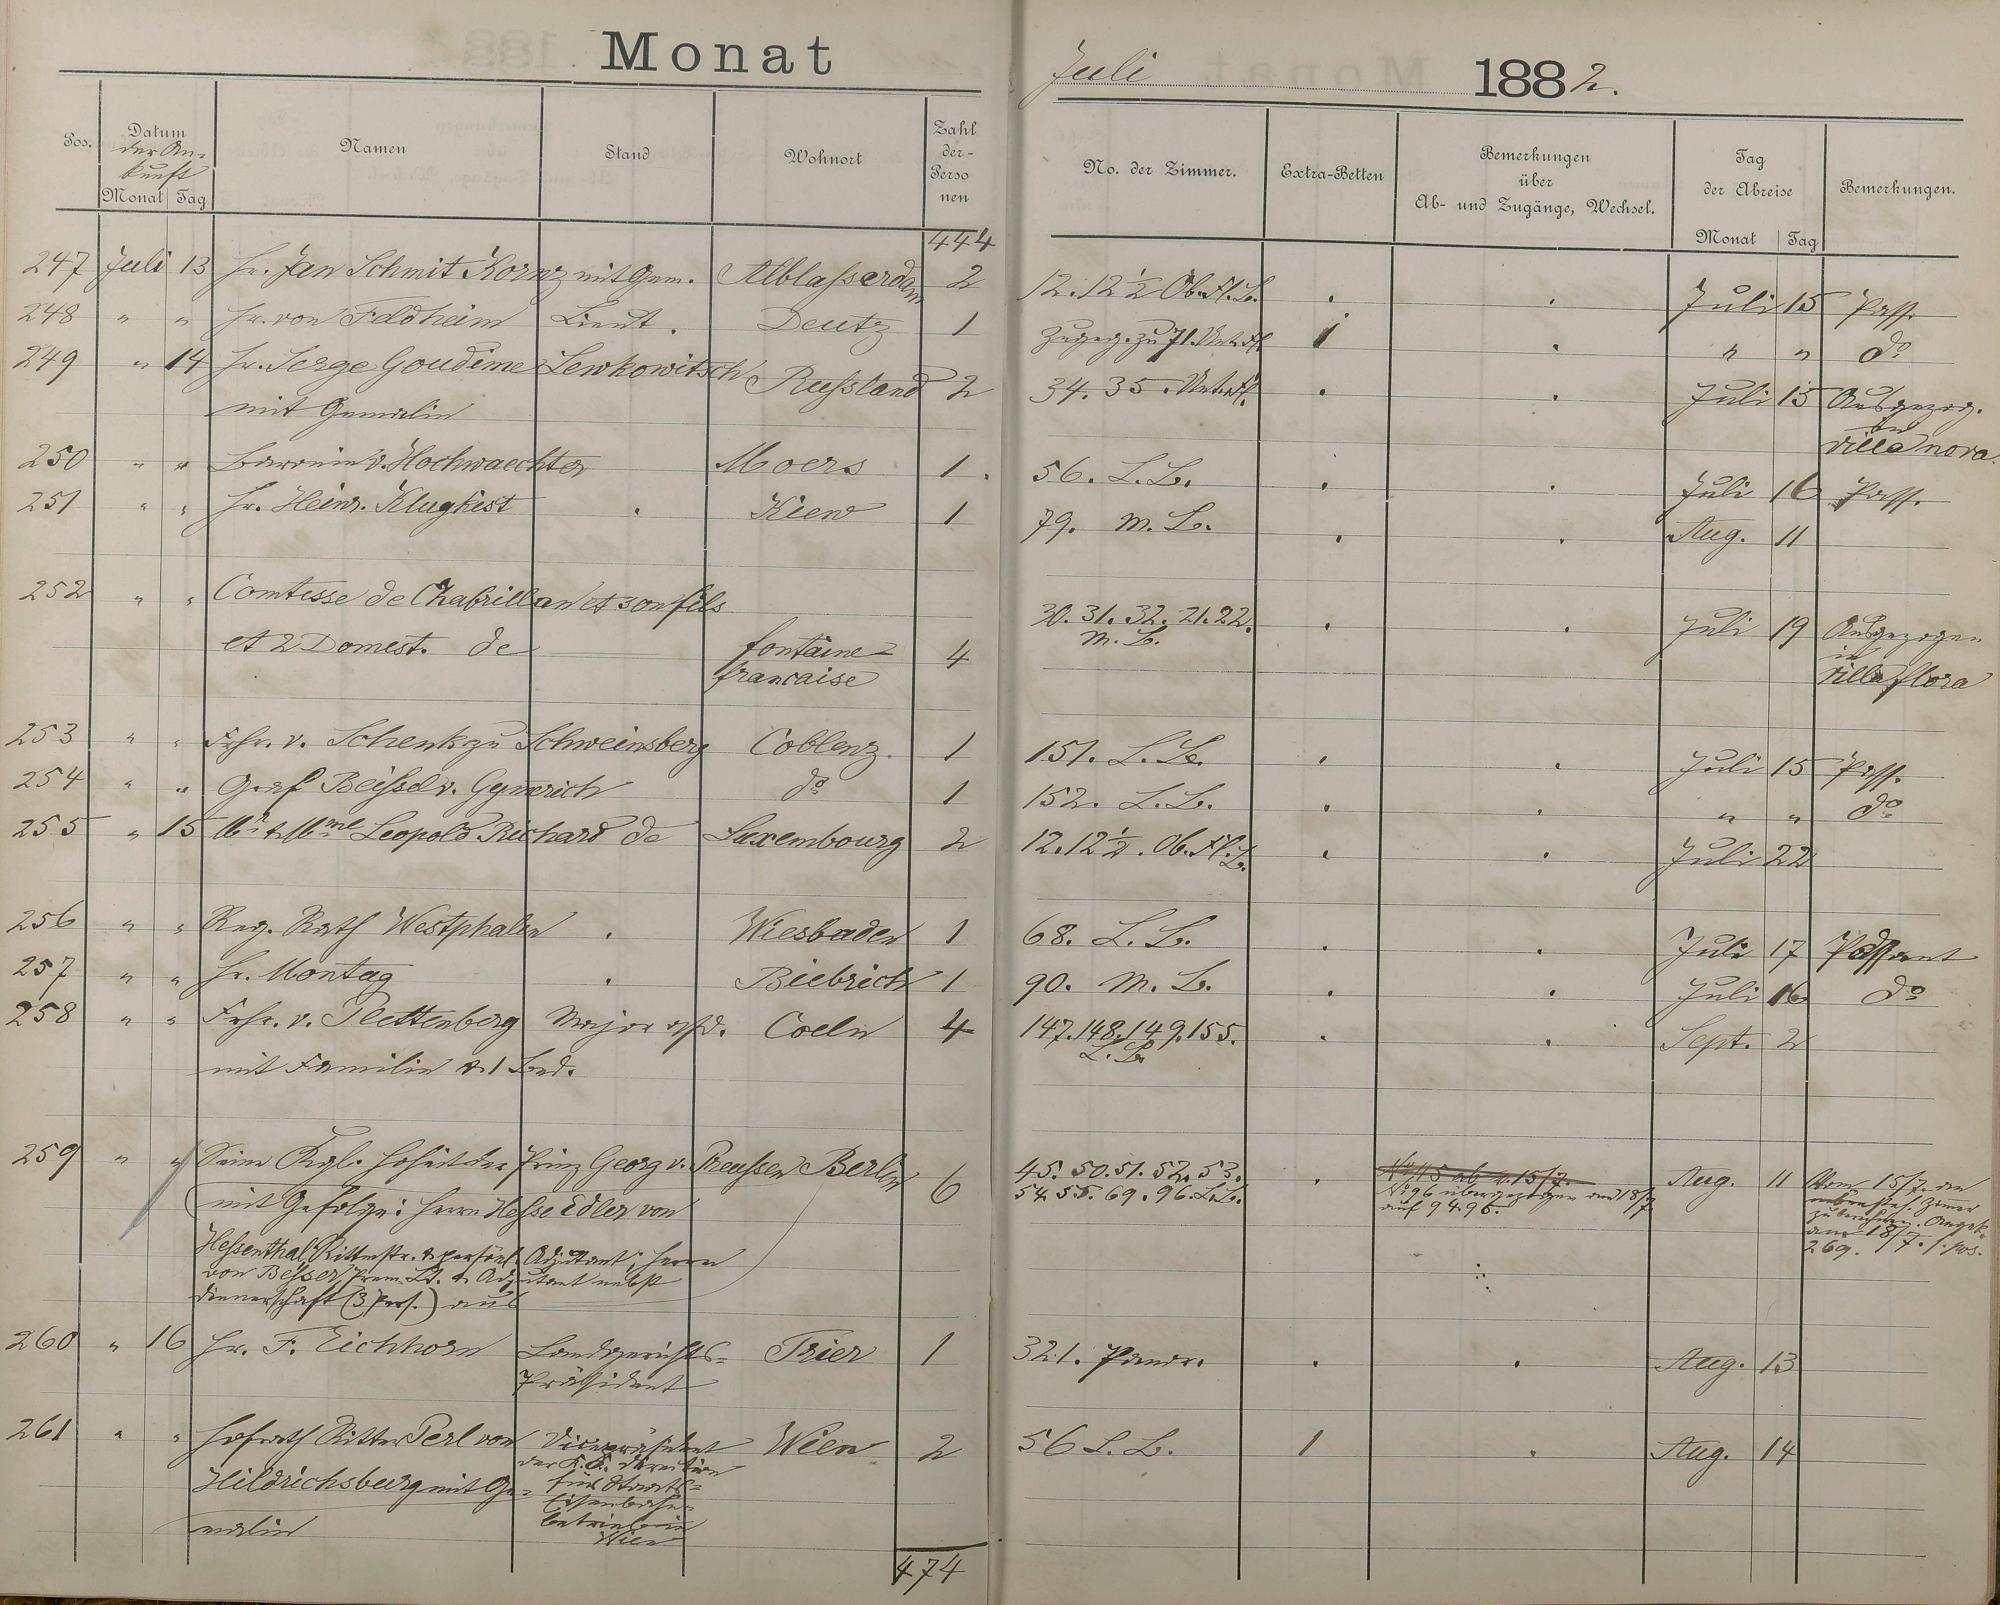 Monat
Juli 1882.
Pos. Datum der Ankunft Monat Tag Namen Stand Wohnort Zahl der Personen
No. der Zimmer. Extra-Betten Bemerkungen über Ab- und Zugänge, Wechsel. Tag der Abreise Monat Tag Bemerkungen.
444
247 Juli 13 Hr. Jan Schmit Kornz mit Gem. Alblasserdam 2 12. 12½ Ob. Fl. L. . . Juli 15 Pass.
248 " " Hr. von Feldheim Lieut. Deutz 1 Zugez. zu 71. Unt. Fl. 1 . " " do
249 " 14 Hr. Serge Goudime Lewkowitsch Russland 2 34. 35. Unt. Fl. . . Juli 15 Ausgezog.
mit Gemalin
villa nova.
250 " " Baronin v. Hochwaechter Moers 1. 56. L. L. . . Juli 16 Pass.
251 " " Hr. Heinr. Klugkist . Kiew 1 79. M. L. . . Aug. 11
252 " " Comtesse de Chabrillan et son fils 30. 31. 32. 21. 22. . . Juli 19 Ausgezogen
et 2 Domest. de fontaine= 4 M. L. in
francaise villa flora
253 " " Frhr. v. Schenk zu Schweinsberg Coblenz. 1 151. L. L. . . Juli 15 Pass.
254 " " Graf Beissel v. Gymnich do 1 152. L. L. . . " " do
255 " 15 Mr & Mme Leopold Richard de Luxembourg 2 12. 12½. Ob. Fl. L. . . Juli 22
256 " " Reg. Rath Westphalen . Wiesbaden 1 68. L. L. . . Juli 17 Passant
257 " " Hr. Montag . Biebrich 1 90. M. L. . . Juli 16 do
258 " " Frhr. v. Plettenberg Major a/D. Coeln 4 147. 148. 149. 155. . . Sept. 2
mit Familie & 1 Bed. L. L.
259 " " Seine Kgl. Hoheit der Prinz Georg v. Preussen Berlin 6 45. 50. 51. 52. 53. . No 45 ab v. 15/7. Aug. 11 Vom 15/7. an
mit Gefolge: Herrn Hesse Edler von 54. 55. 69. 96. L. L. No 96 übergezogen am 18/7 Zimmer
auf 94. 95. zu berechnen. Angek.
Hessenthal, Rittmstr. & persönl. Adjutant; Herrn am 18/7. /: pos.
von Besser, Prem. Lt. & Adjutant nebst 269.
Dienerschaft (3 Pers.) aus
260 " 16 Hr. F. Eichhorn Landgerichts= Trier 1 321. Panor. . . Aug. 13
Präsident
261 " " Hofrath Ritter Perl von Vicepräsident Wien 2 56 L. L. 1 . Aug. 14
der K. K. Direction
Hildrichsburg mit Ge= für Staats=
Eisenbahn=
malin betrieb in
Wien
474